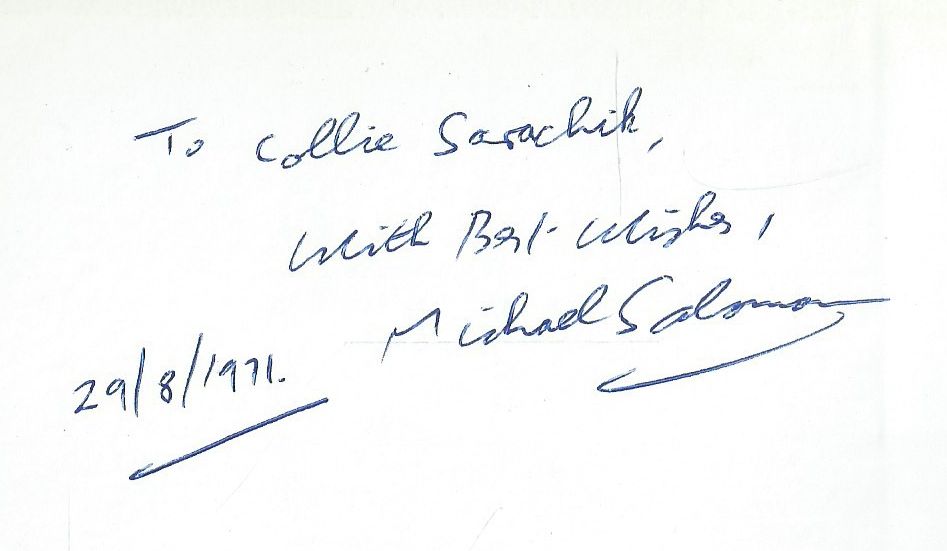 To Collie Sarachik,
With Best Wishes,
Michael Salomon
29/8/1971.